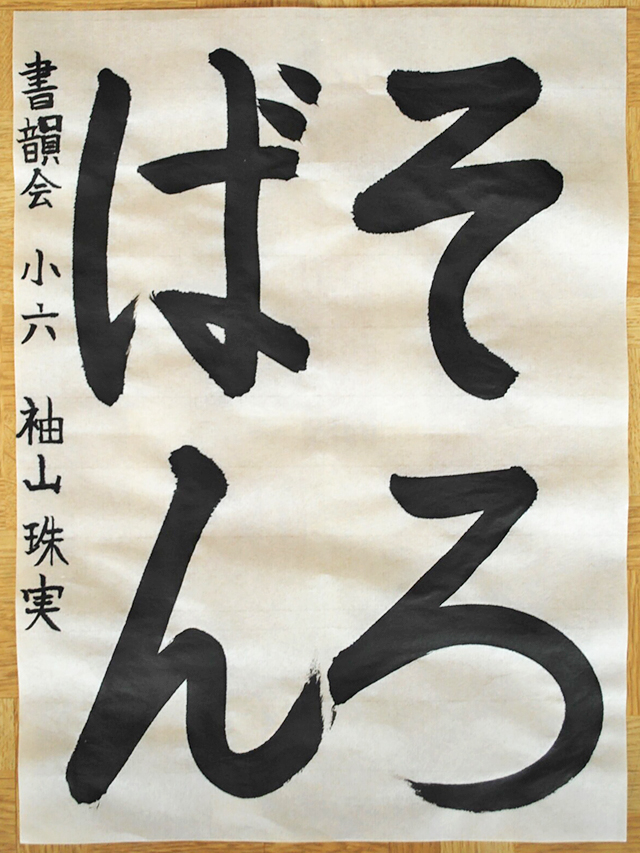 そろ
ばん
書韻会 小六 袖山珠実